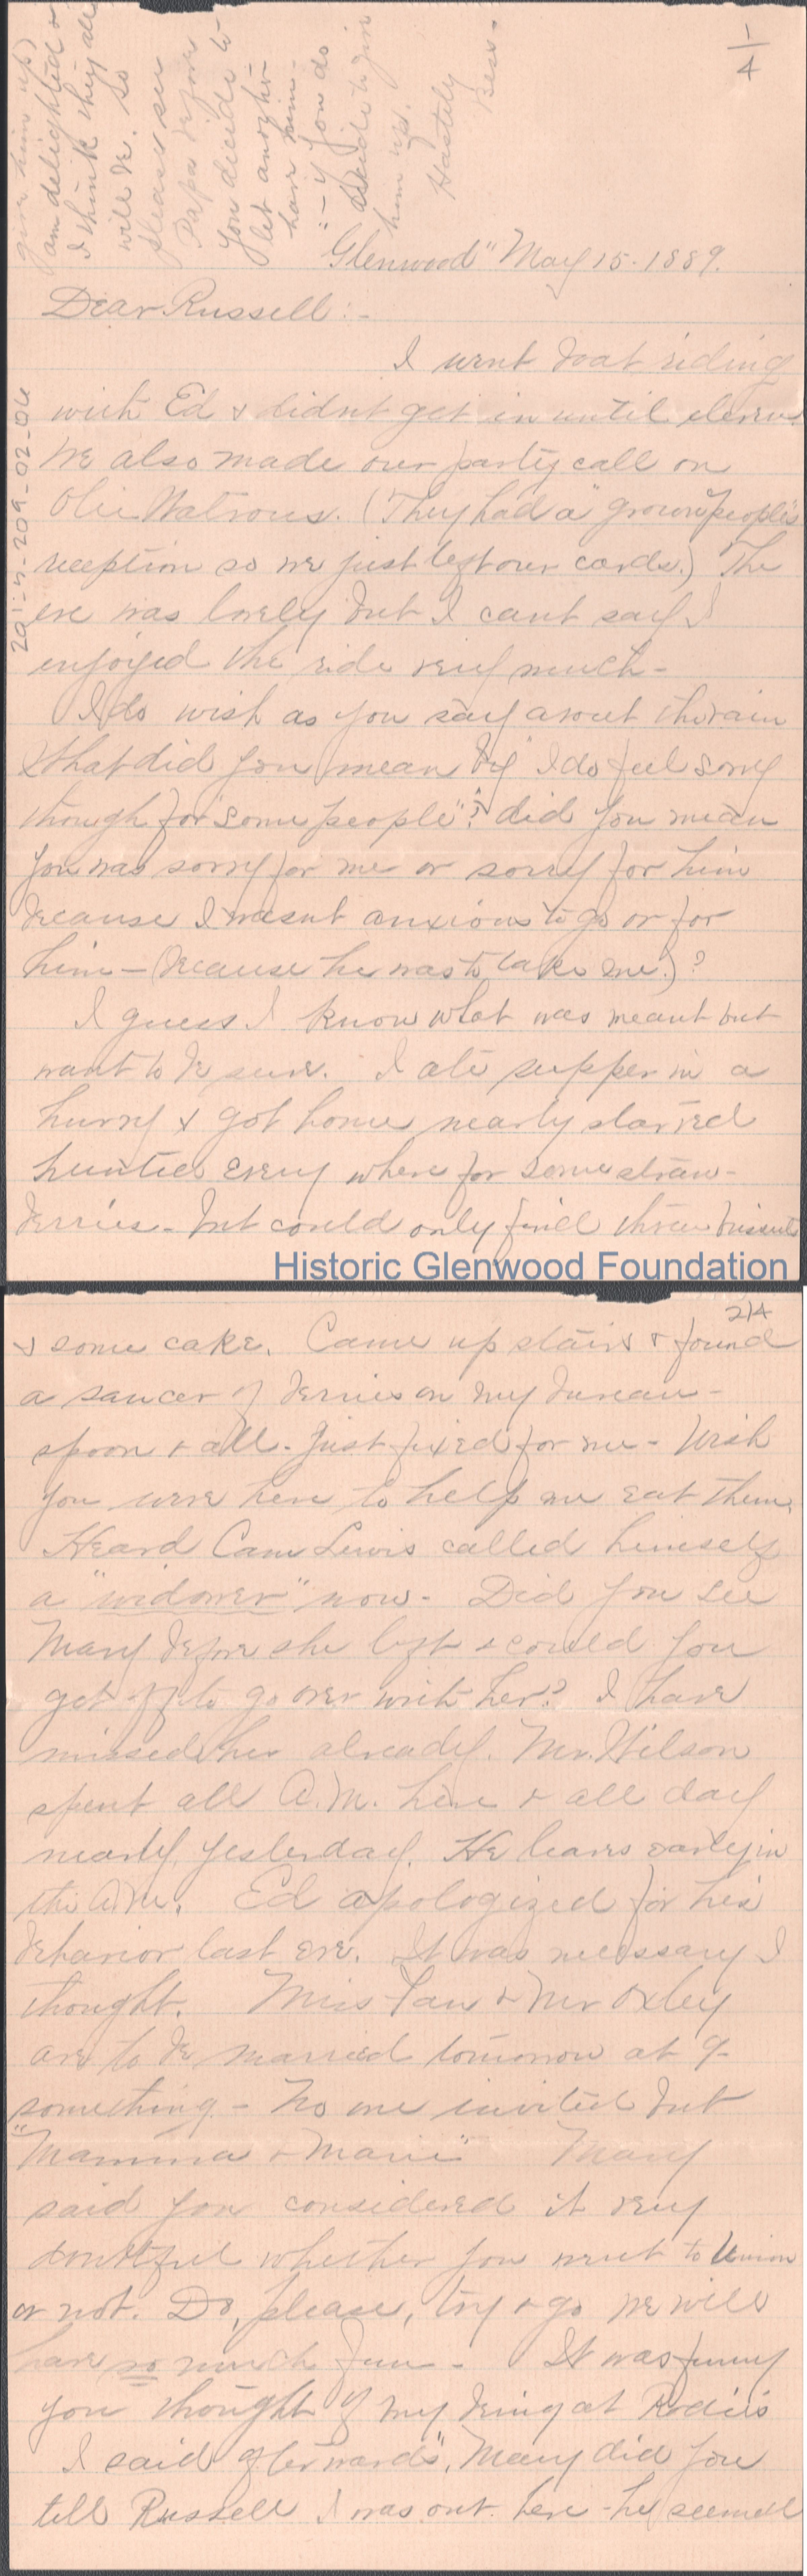 give him up)
am delighted &
I think they all
will be. So
please see
Papa before
you decide to
let another
have him -
- if you do
decide to give
him up.
Hastily
Bess.
1/4
"Glenwood" May 15 - 1889.
Dear Russell: -
I went boat riding
with Ed & didn't get in until eleven
We also made our party call on
Olie Watrous. (They had a "grown people's"
reception so we just left our cards.) The
eve was lovely but I can't say I
enjoyed the ride very much -
I do wish as you say about the rain
What did you mean by "I do feel sorry
though for "some people"? did you mean
you was sorry for me or sorry for him
because I wasn't anxious to go or for
him - (because he was to take me.)?
I guess I know what was meant but
want to be sure. I ate supper in a
hurry & got home nearly starved
hunted every where for some straw-
berries - but could only find three biscuits
201-5-209-02-04
Historic Glenwood Foundation
2/4
& some cake. Came up stairs & found
a saucer of berries on my bureau -
spoon & all - just fixed for me - Wish
you were here to help me eat them.
Heard Cam Lewis called himself
a "widower" now - Did you see
Mary before she left & could you
get off to go over with her? I have
missed her already. Mr. Wilson
spent all A.M. here & all day
nearly yesterday. He leaves early in
the A.M. Ed apologized for his
behavior last eve. It was necessary I
thought. Miss & Mr Oxley
are to be married tomorrow at 9 -
something - No one invited but
"Mamma & Marie" Mary
said you considered it very
doubtful whether you went to Union
or not. Do, please, try & go we will
have so much fun - It was funny
you thought of my being at
I said afterwards, "Mary did you
tell Russell I was out here - he seemed